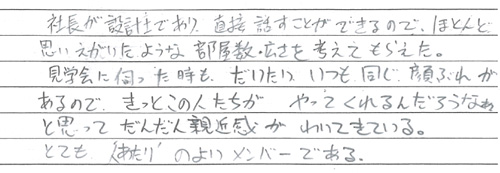 社長が設計士であり直接話すことができるので、ほとんど
思いえがいたような部屋数・広さを考えてもらえた。
見学会に伺った時も、だいたいいつも同じ顔ぶれが
あるので、きっとこの人たちが やってくれるんだろうなぁ
と思ってだんだん親近感がわいてきている。
とても、人あたりのよいメンバーである。